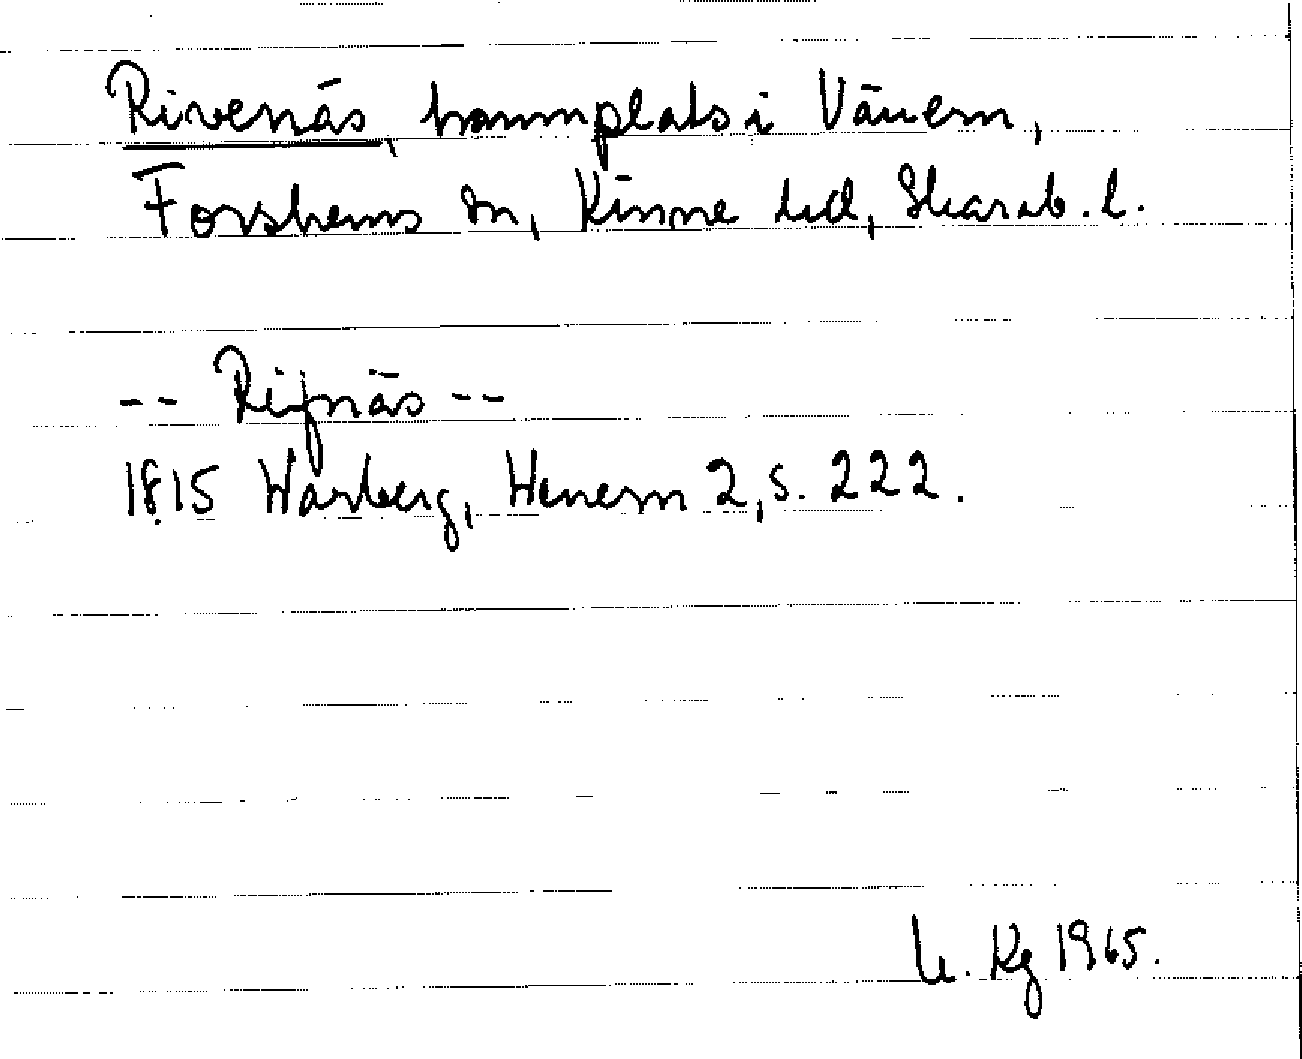 Rivenäs, hamnplats i Vänern,
Forshems sn, Kinne hd, Skarab. l.
-- Reifnäs --
1815 Warberg, Wenern 2, s. 222.
Kg 1965.